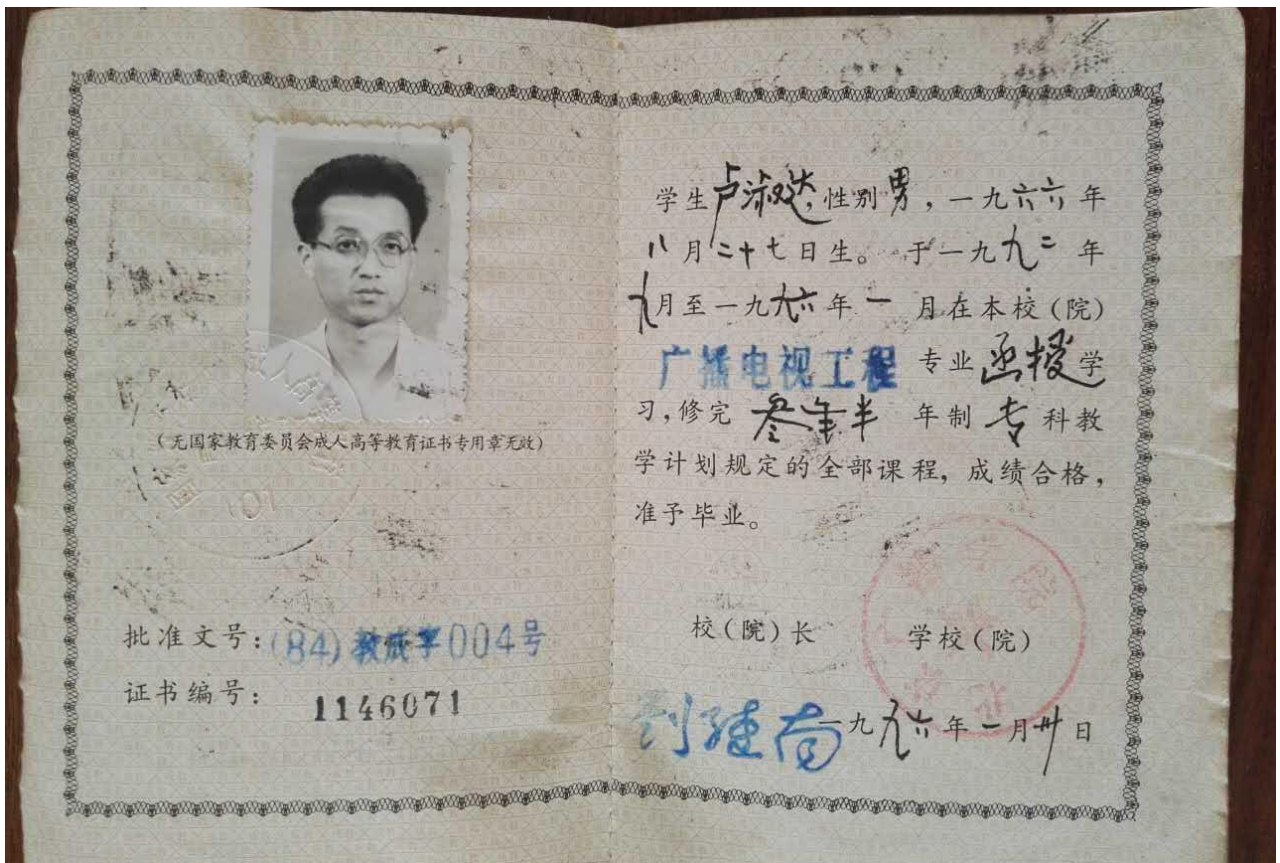 (无国家教育委员会成人高等教育证书专用章无效)
批准文号:(84)教成字004号
证书编号: 1146071
学生卢淑达,性别男,一九六六年
八月二十七日生。于一九九二年
九月至一九九六年一月在本校(院)
广播电视工程专业函授学
习,修完叁年半年制专科教
学计划规定的全部课程,成绩合格,
准予毕业。
校(院)长 学校(院)
刘继南
一九九六年一月卅日